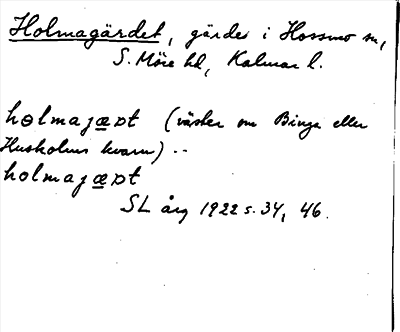 Holmagärdet, gärde i Hossmo sn,
S. Möre hd, Kalmar l.
holmajæɒt (väster om Binga eller
Husholms kvarn) ..
holmajæɒt
SL årg 1922 s. 34, 46.